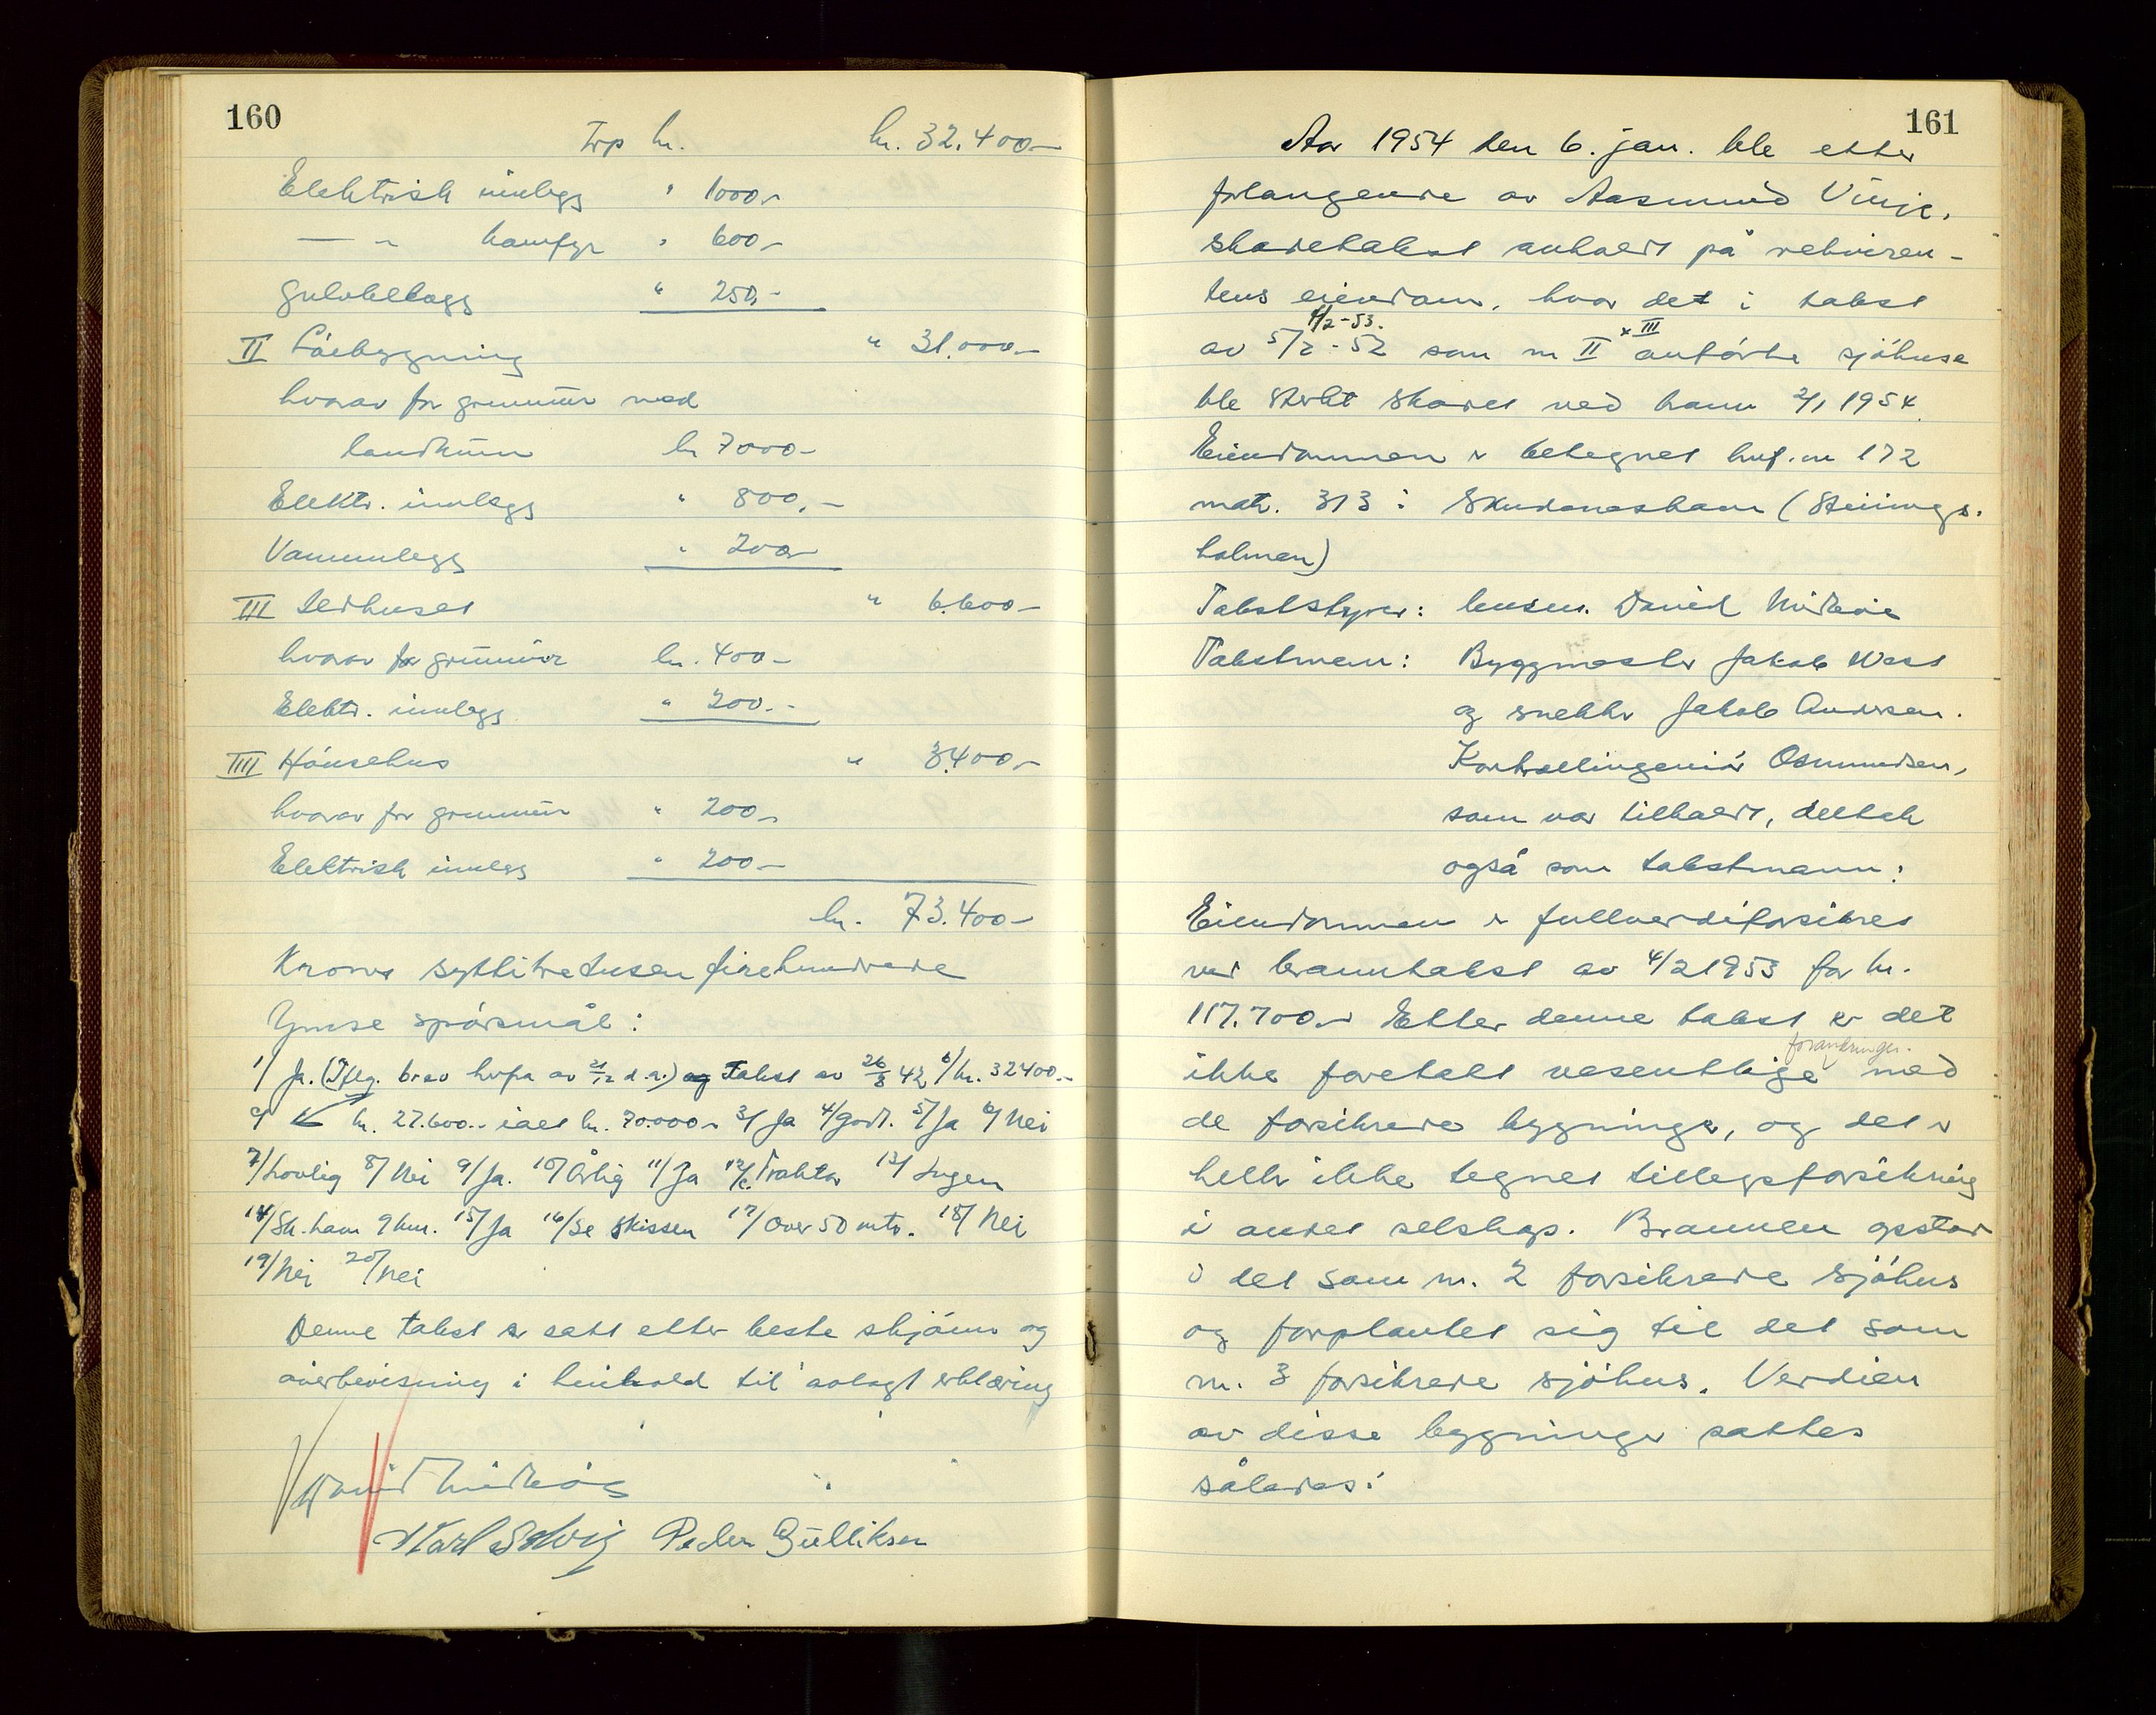 160
Trp kr. kr. 32.400.-
Elektrisk innlegg " 1000,-
— " — kamfyr " 600,-
Gulvbelegg " 250,-
II Löebygning " 31.000.-
hvorav for grunnmur med
landkum kr 7000-
Elektr. innlegg " 800,-
Vanninnlegg " 200-
III Eldhuset " 6.600-
hvorav for grunnmur kr. 400-
Elektr. innlegg " 200.-
IIII Hönsehus " 3.400,-
hvorav for grunnmur " 200,-
Elektrisk innlegg " 200-
kr. 73.400-
Kroner syttitretusenfirehundrede
Ymse spörsmål:
1/ Ja. (Iflg. brev hvfra av 21/12 d.a.) og Takst av 26/8 42 b/ kr. 32400.-
c/ kr. 27.600.- ialt kr. 70.000.- 3/ Ja 4/ Godt. 5/ Ja 6/ Nei
7/ Lovlig 8/ Nei 9/ Ja. 10/ Årlig 11/ Ja 12/c. Traktor 13/ Ingen
14/ Sk.havn 9 km. 15/ Ja 16/ Se Skissen 17/ Over 50 mtr. 18/ Nei
19/ Nei 20/ Nei
Denne takst er satt etter beste skjönn og
överbevisning i henhold til avlagt erklæring
David Midböe
Karl Solvig Peder Gulliksen
161
Aar 1954 den 6. jan. ble etter
forlangende av Aasmund Vinje,
skadetakst avholdt på rekviren-
tens eiendom, hvor det i takst
4/2-53. x III
av 5/2-52 som nr II anförte sjöhuse
ble sterkt skadet ved brann 2/1 1954.
Eiendommen er betegnet huf. nr 172
matr. 313 i Skudeneshavn (Steinings-
holmen)
Takststyrer: lensm. David Midböe
Takstmenn: Byggmester Jakob West
og snekker Jakob Andersen.
Kontrollingeniör Osmundsen,
som var tilkaldt, deltok
også som takstmann:
Eiendommen er fullverdiforsikret
ved branntakst av 4/2 1953 for kr.
117.700.- Etter denne takst er det
forandringer.
ikke foretatt vesentlige med
de forsikrede bygninger, og det er
heller ikke tegnet tilleggsforsikring
i andet selskap. Brannen opstod
i det som nr. 2 forsikrede sjöhus
og forplantet sig til det som
nr. 3 forsikrede sjöhus. Verdien
av disse bygninger sattes
således: